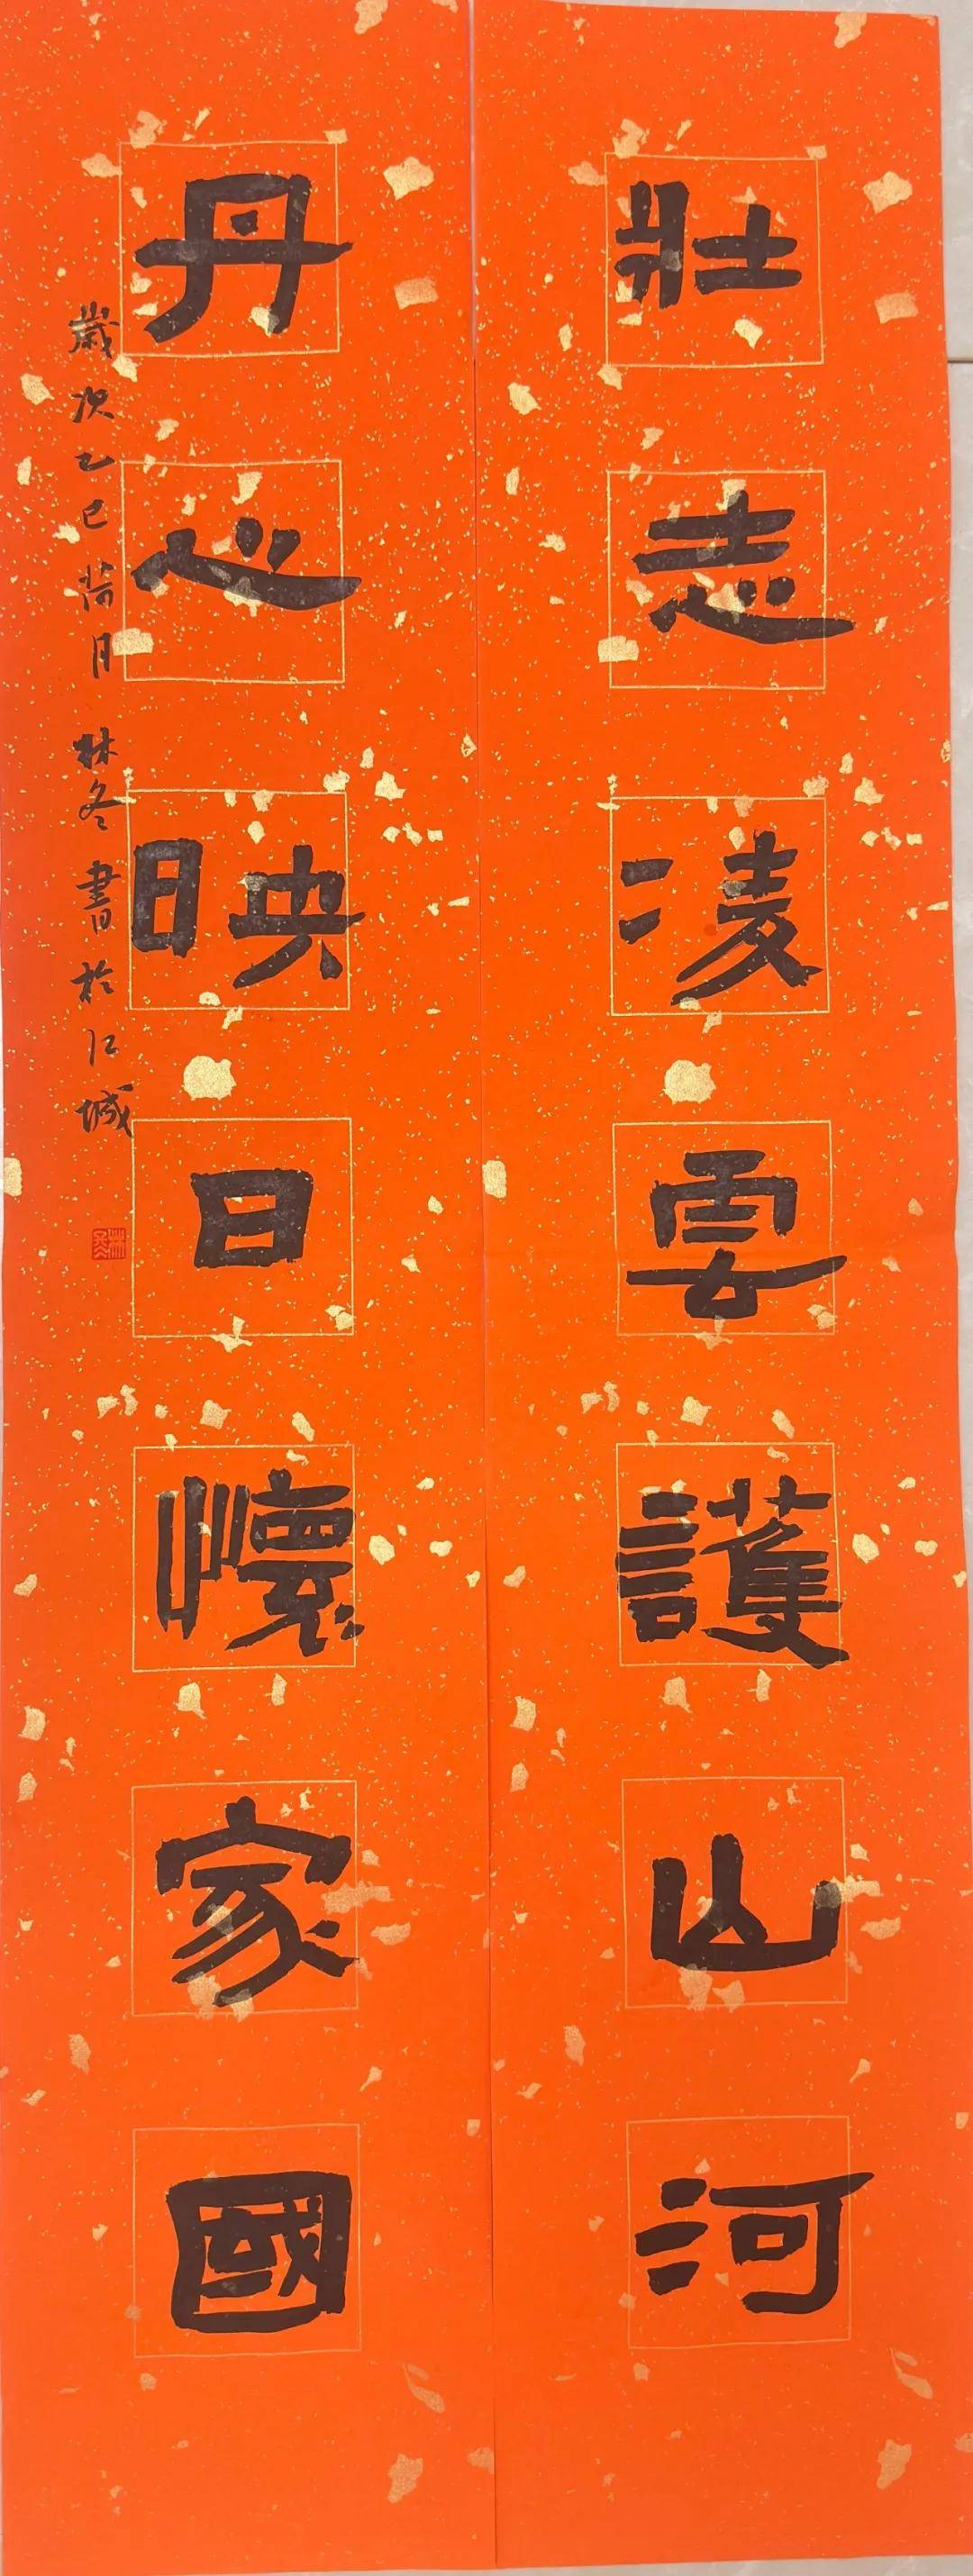 壯志凌雲護山河
丹心映日懷家國
歲次乙巳荷月林冬書於江城
林冬